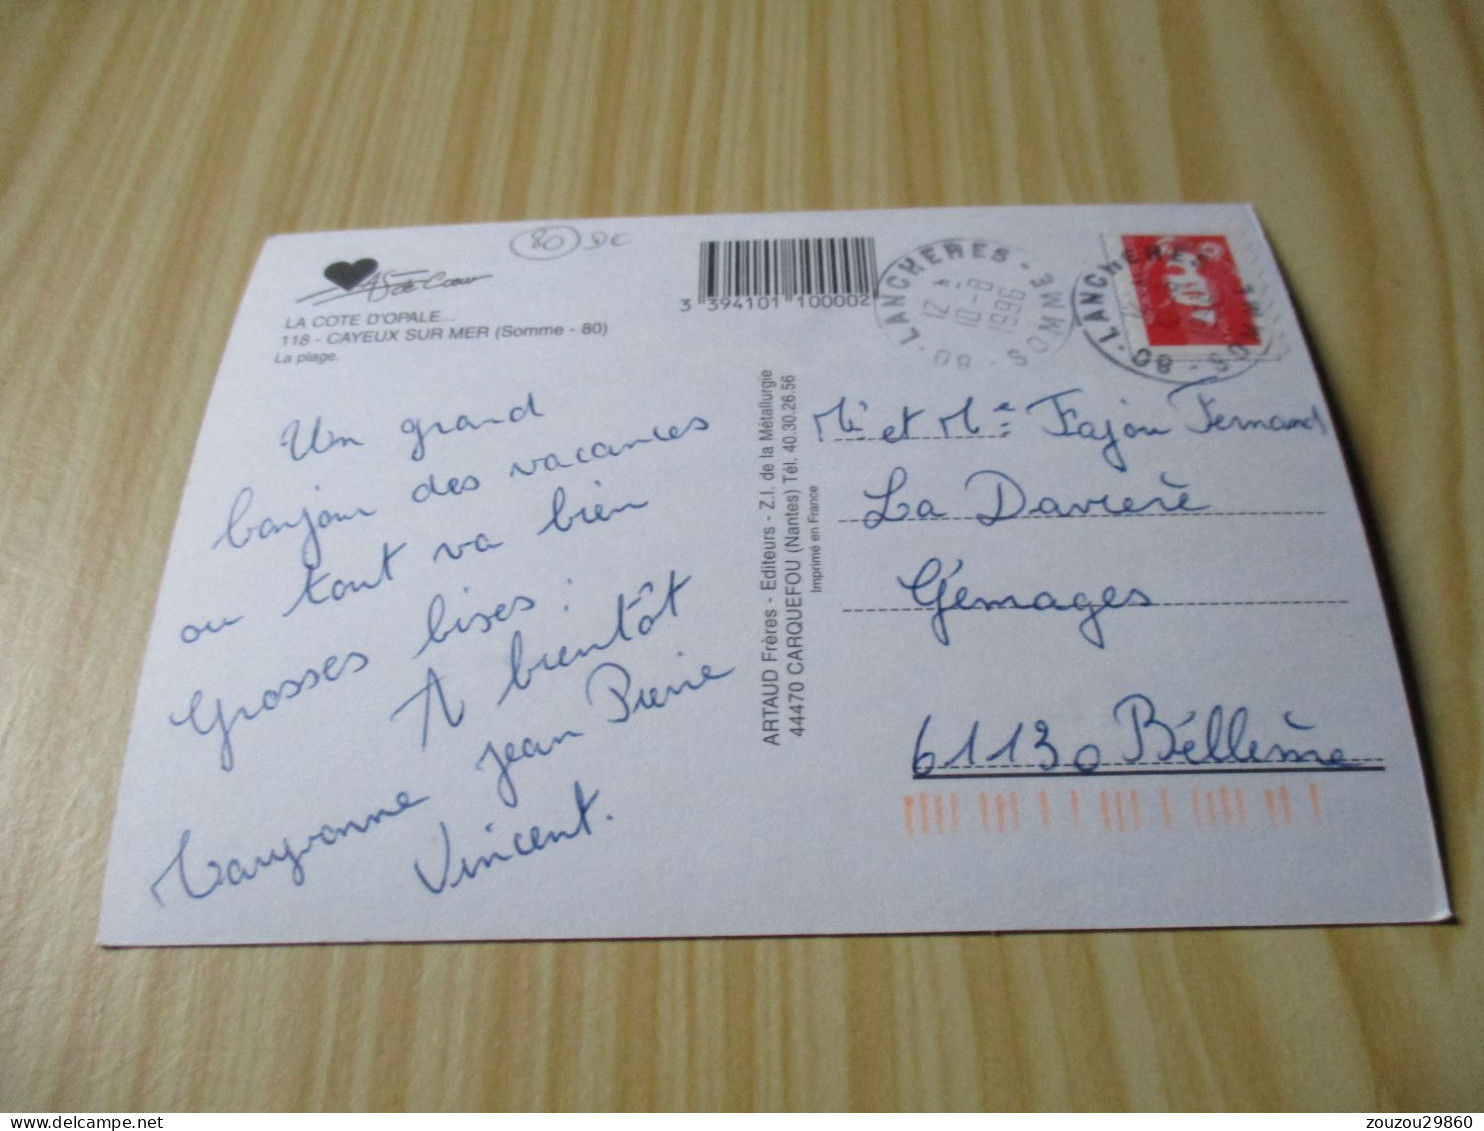 80 DE
As de Coeur
LA COTE D'OPALE...
118 - CAYEUX SUR MER (Somme - 80)
La plage.
3 394101 100002
LANCHERES - SOMME
12 H
10-8
1996
80
LANCHERES
80 - SOMME
Un grand
bonjour des vacances
ou tout va bien
Grosses bises :
A bientôt
Maryvonne Jean Pierre
Vincent.
ARTAUD Frères - Editeurs - Z.I. de la Métallurgie
44470 CARQUEFOU (Nantes) Tél. 40.30.26.56
Imprimé en France
Mr et Me Fajou Fernand
La Davierè
Gémages
61130 Béllème
zouzou29860